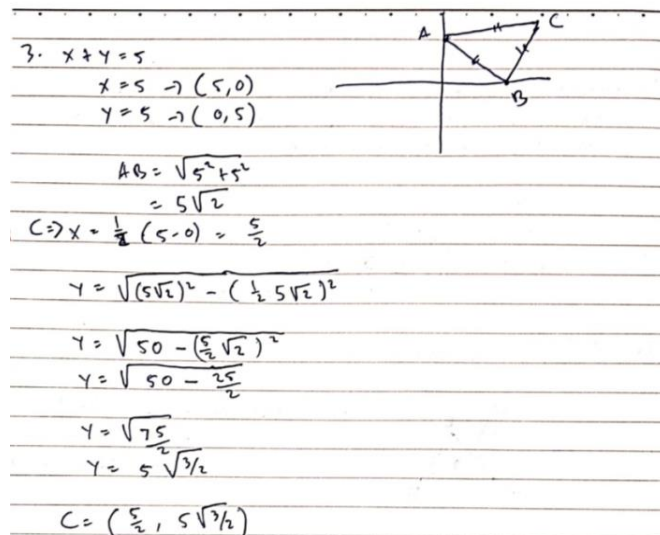 3. x + y = 5
x = 5 → (5,0)
y = 5 → (0,5)
A
C
B
AB = √(5² + 5²)
= 5√2
C => x = 1/2 (5-0) = 5/2
y = √((5√2)² - (1/2 5√2)²)
y = √(50 - (5/2 √2)²)
y = √(50 - 25/2)
y = √(75/2)
y = 5√(3/2)
C = (5/2, 5√(3/2))